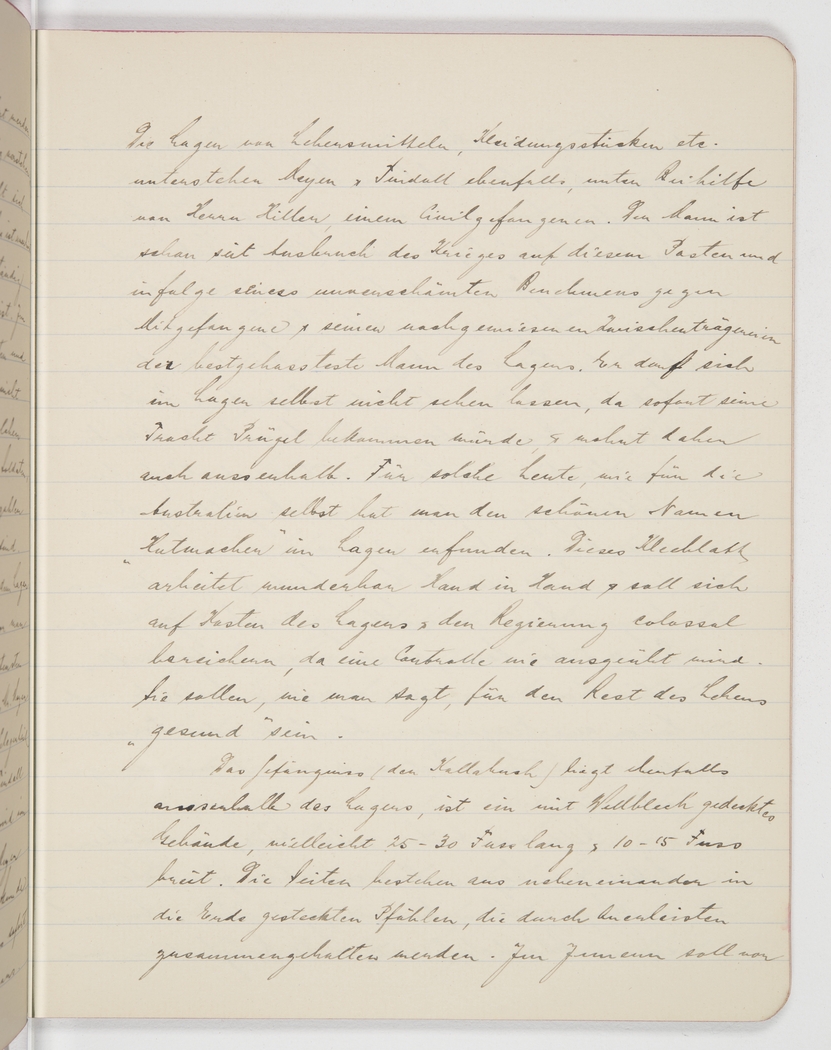 Die Lager von Lebensmitteln, Kleidungsstücken etc.
unterstehen Meyer & Tindall ebenfalls, unter Beihilfe
von Herrn Hiller, einem Civilgefangenen. Der Mann ist
schon seit Ausbruch des Krieges auf diesem Posten und
infolge seines unverschämten Benehmens gegen
Mitgefangene & seinen nachgewiesenen Zwischenträgereien
der bestgehassteste Mann des Lagers. Er darf sich
im Lager selbst nicht sehen lassen, da sofort seine
Tracht Prügel bekommen würde, & wohnt daher
auch aussenhalb. Für solche Leute, wie für die
Australier selbst hat man den schönen Namen
„Hutmacher" im Lager erfunden. Dieses Kleeblatt
arbeitet wunderbar Hand in Hand & soll sich
auf Kosten des Lagers & der Regierung colossal
bereichern, da eine Controlle nie ausgeübt wird.
Sie sollen, wie man sagt, für den Rest des Lebens
„gesund" sein.
Das Gefängniss (der Kallabush) liegt ebenfalls
aussenhalb des Lagers, ist ein mit Wellblech gedecktes
Gebäude, vielleicht 25-30 Fuss lang & 10-15 Fuss
breit. Die Seiten bestehen aus nebeneinander in
die Erde gesteckten Pfählen, die durch Querleisten
zusammengehalten werden. Im Innern soll von